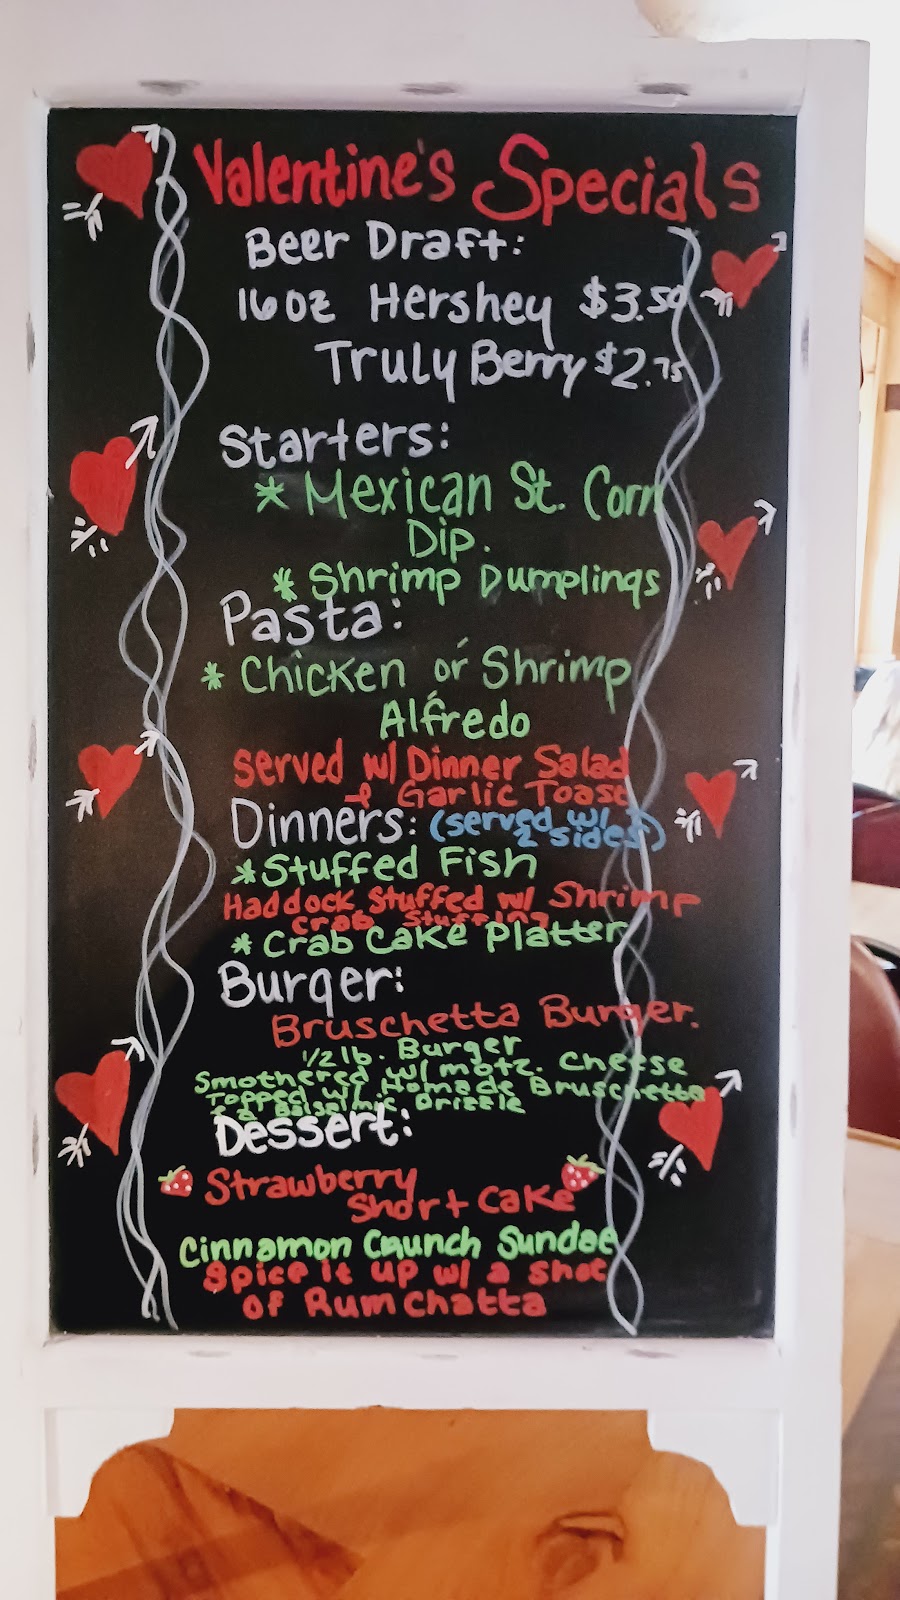 Valentine's Specials
Beer Draft:
16oz Hershey $3.50
Truly Berry $2.75
Starters:
* Mexican St. Corn
Dip.
* Shrimp Dumplings
Pasta:
* Chicken or Shrimp
Alfredo
Served w/ Dinner Salad
& Garlic Toast
Dinners: (served w/
2 sides)
* Stuffed Fish
Haddock Stuffed w/ Shrimp
crab stuffing
* Crab Cake Platter
Burger:
Bruschetta Burger.
1/2 lb. Burger
Smothered w/ motz. Cheese
Topped w/ Homade Bruschetta
& a Balsalmic Drizzle
Dessert:
Strawberry
Short Cake
Cinnamon Crunch Sundae
Spice it up w/ a shot
of Rum Chatta